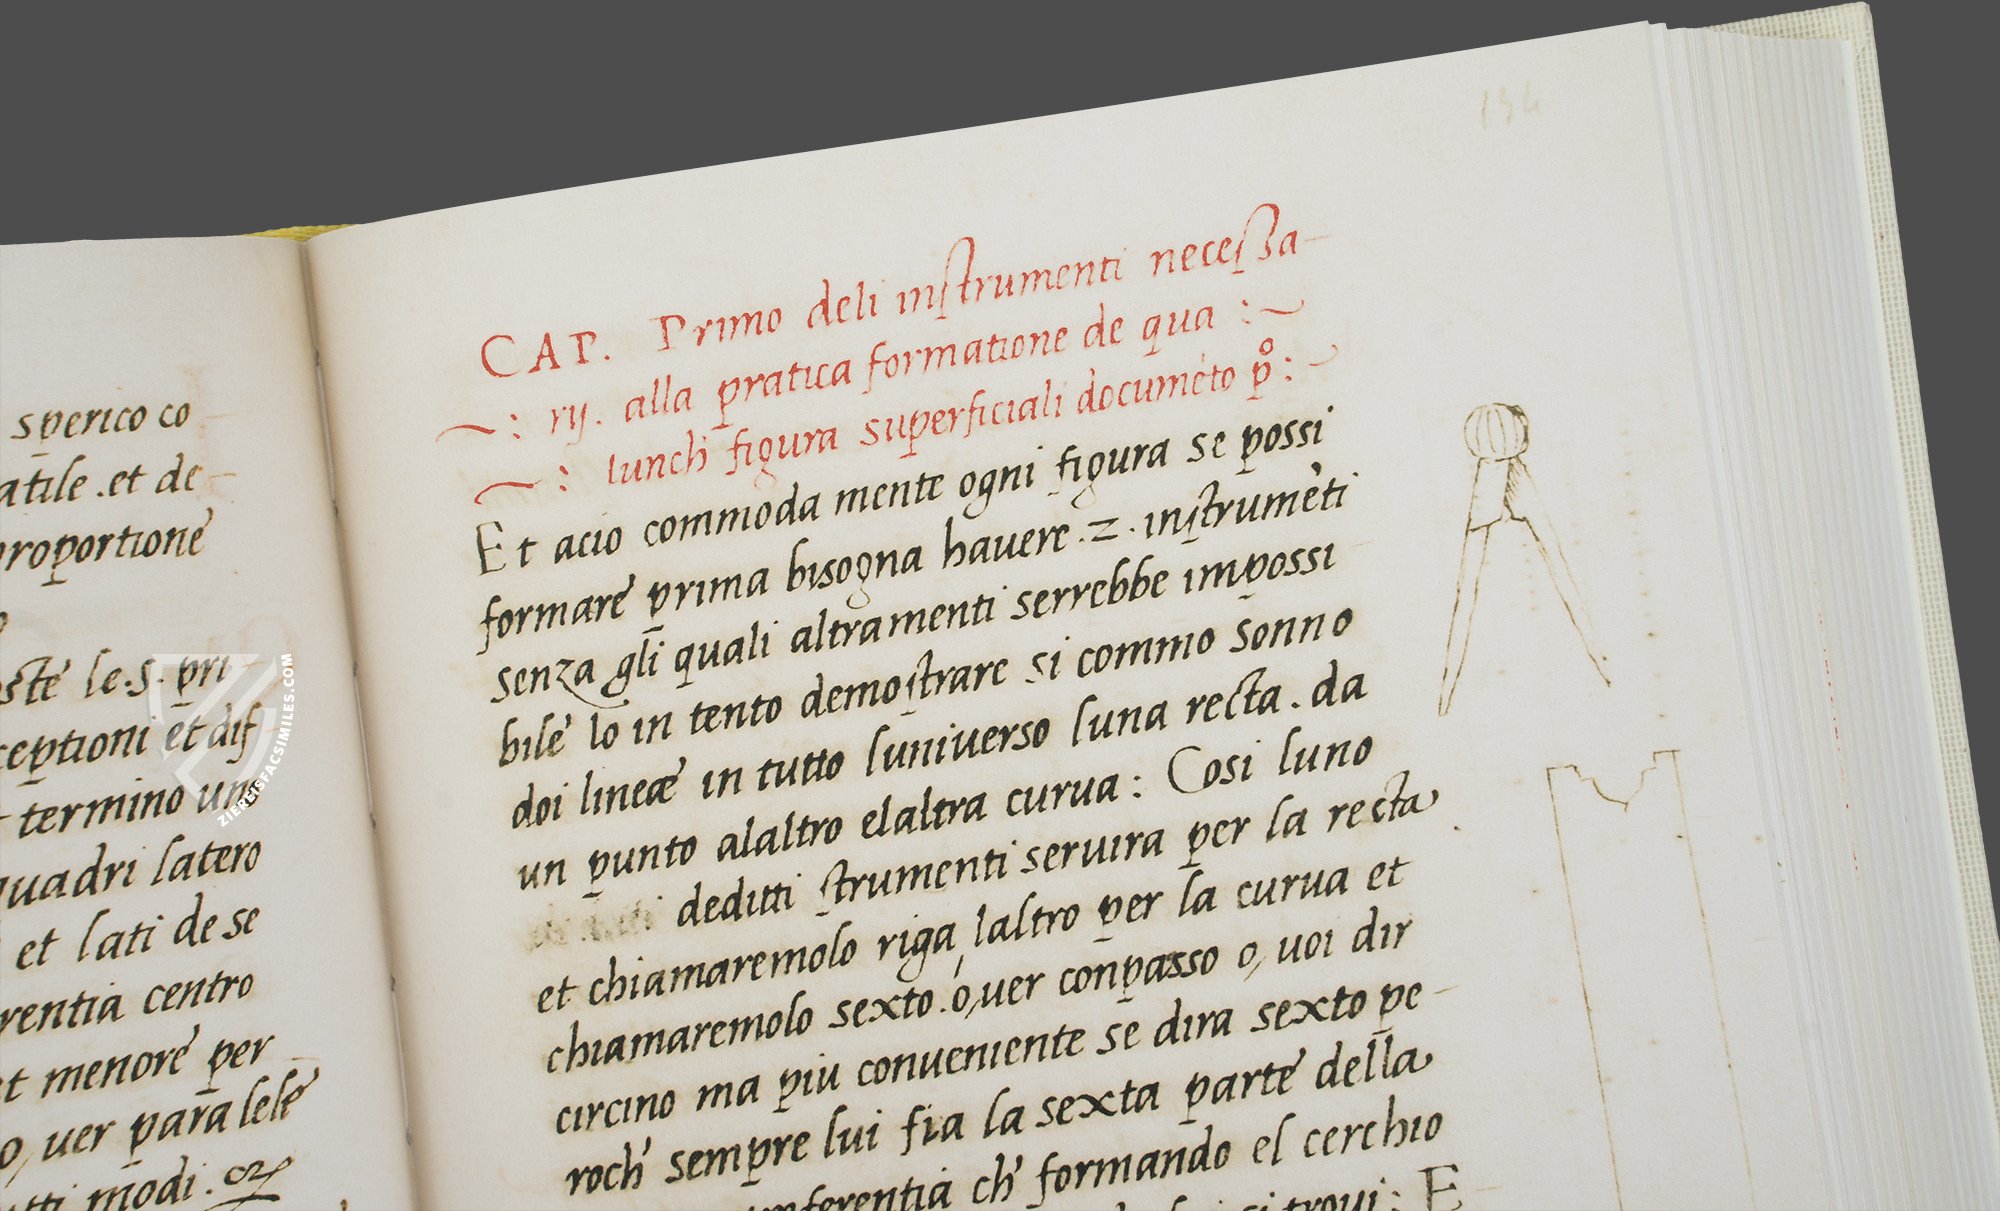 sperico co
atile . et de
proportione
oste le . s . pri
ceptioni et dif
termino uno
quadri latero
et lati de se
rentia centro
et menore per
o, uer paralele
tutti modi .
ZIEREISFACSIMILES.COM
134
CAP. Primo deli instrumenti necessa
: rij. alla pratica formatione de qua :
: lunch figura superficiali documēto pº :
Et acio commoda mente ogni figura se possi
formare prima bisogna hauere . 2 . instrumēti
senza gli quali altramenti serrebbe impossi
bile lo in tento demostrare si commo sonno
doi lineæ in tutto luniuerso luna recta . da
un punto alaltro elaltra curua : Cosi luno
deditti strumenti seruira per la recta
et chiamaremolo riga, laltro per la curua et
chiamaremolo sexto . o, uer conpasso o, uoi dir
circino ma piu conueniente se dira sexto pe
roch' sempre lui fia la sexta parte della
umferentia ch' formando el cerchio
si troui : E